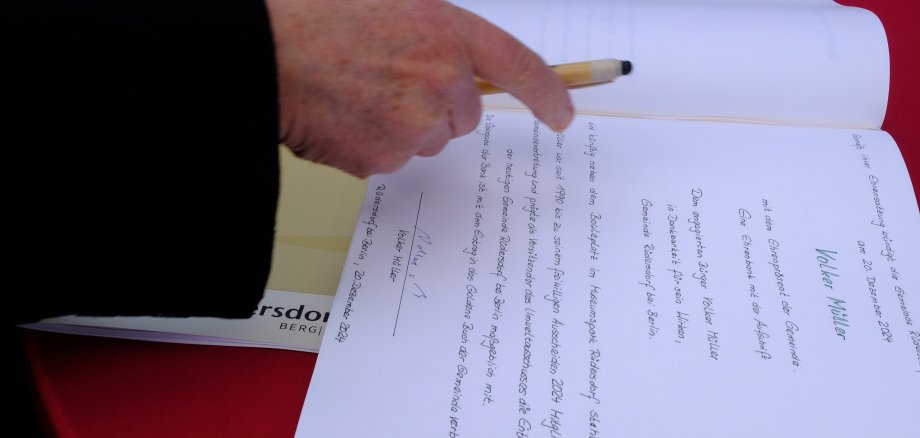 gemäß ihrer Ehrensatzung würdigt die Gemeinde
am 20. Dezember 2024
Volker Müller
mit dem Ehrenpräsent der Gemeinde.
Eine Ehrenbank mit der Aufschrift
Dem engagierten Bürger Volker Müller
in Dankbarkeit für sein Wirken,
Gemeinde Rüdersdorf bei Berlin.
künftig neben dem Bouleplatz im Museumspark Rüdersdorf
war seit 1990 bis zu seinem freiwilligen Ausscheiden 2024
und prägte als Vorsitzender des Umweltausschusses die
der heutigen Gemeinde Rüdersdorf bei Berlin maßgeblich mit.
Die Übergabe der Bank ist mit dem Eintrag in das Goldene Buch der Gemeinde
Volker Müller
Rüdersdorf bei Berlin, 20. Dezember 2024
ersdor
BERG